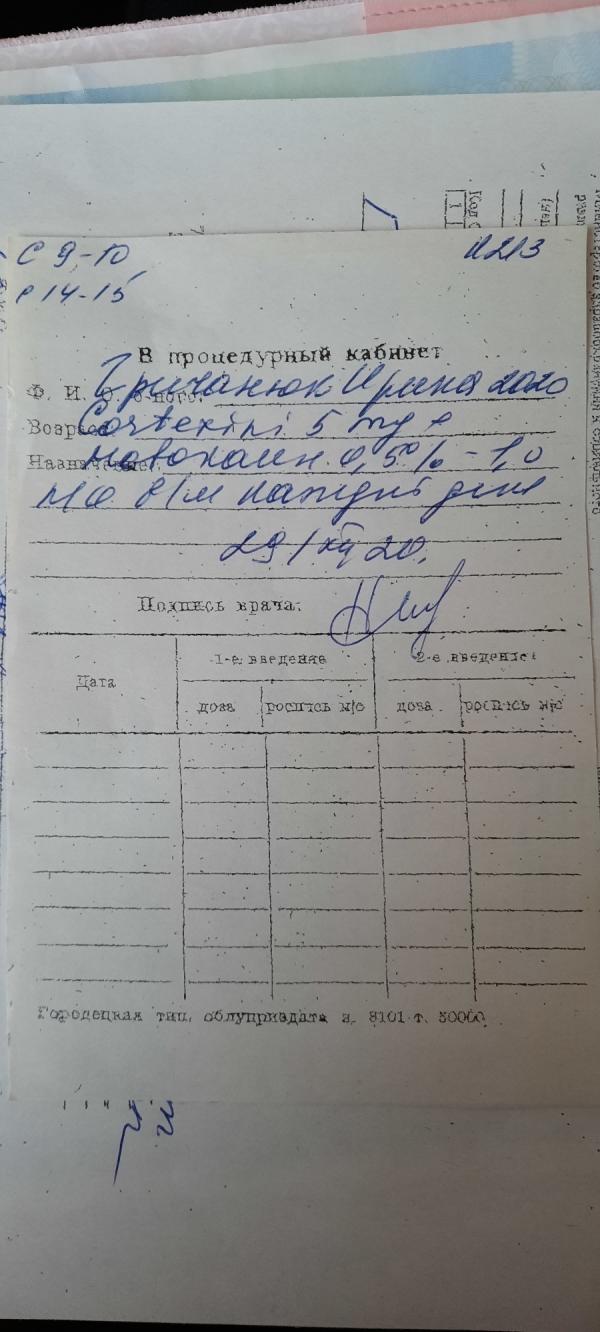 с 9-10
с 14-15
к213
В процедурный кабинет
Ф. И. О. б-ного: Гричанюк Ирина 2020
Возраст Cortexini 5 mg с
Назначение: новокаин 0,5% - 1,0
N10 в/м каждый день
29/XII 20.
Подпись врача:
Дата
1-е введение
2-е введение
доза
роспись м/с
доза
роспись м/с
Городецкая тип. облуприздата з. 8101 т. 50000